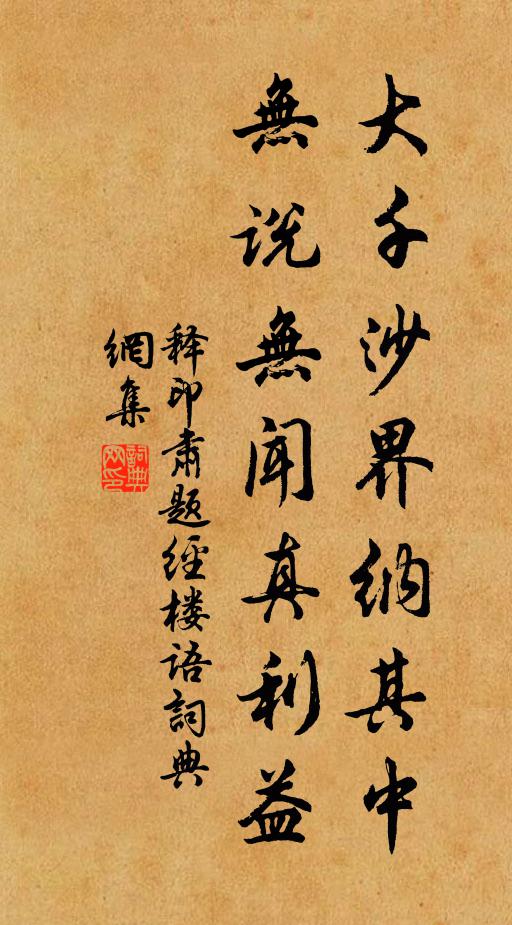 大千沙界纳其中
無说無闻真利益
释印肃题经楼语詞典
網集
詞典網印